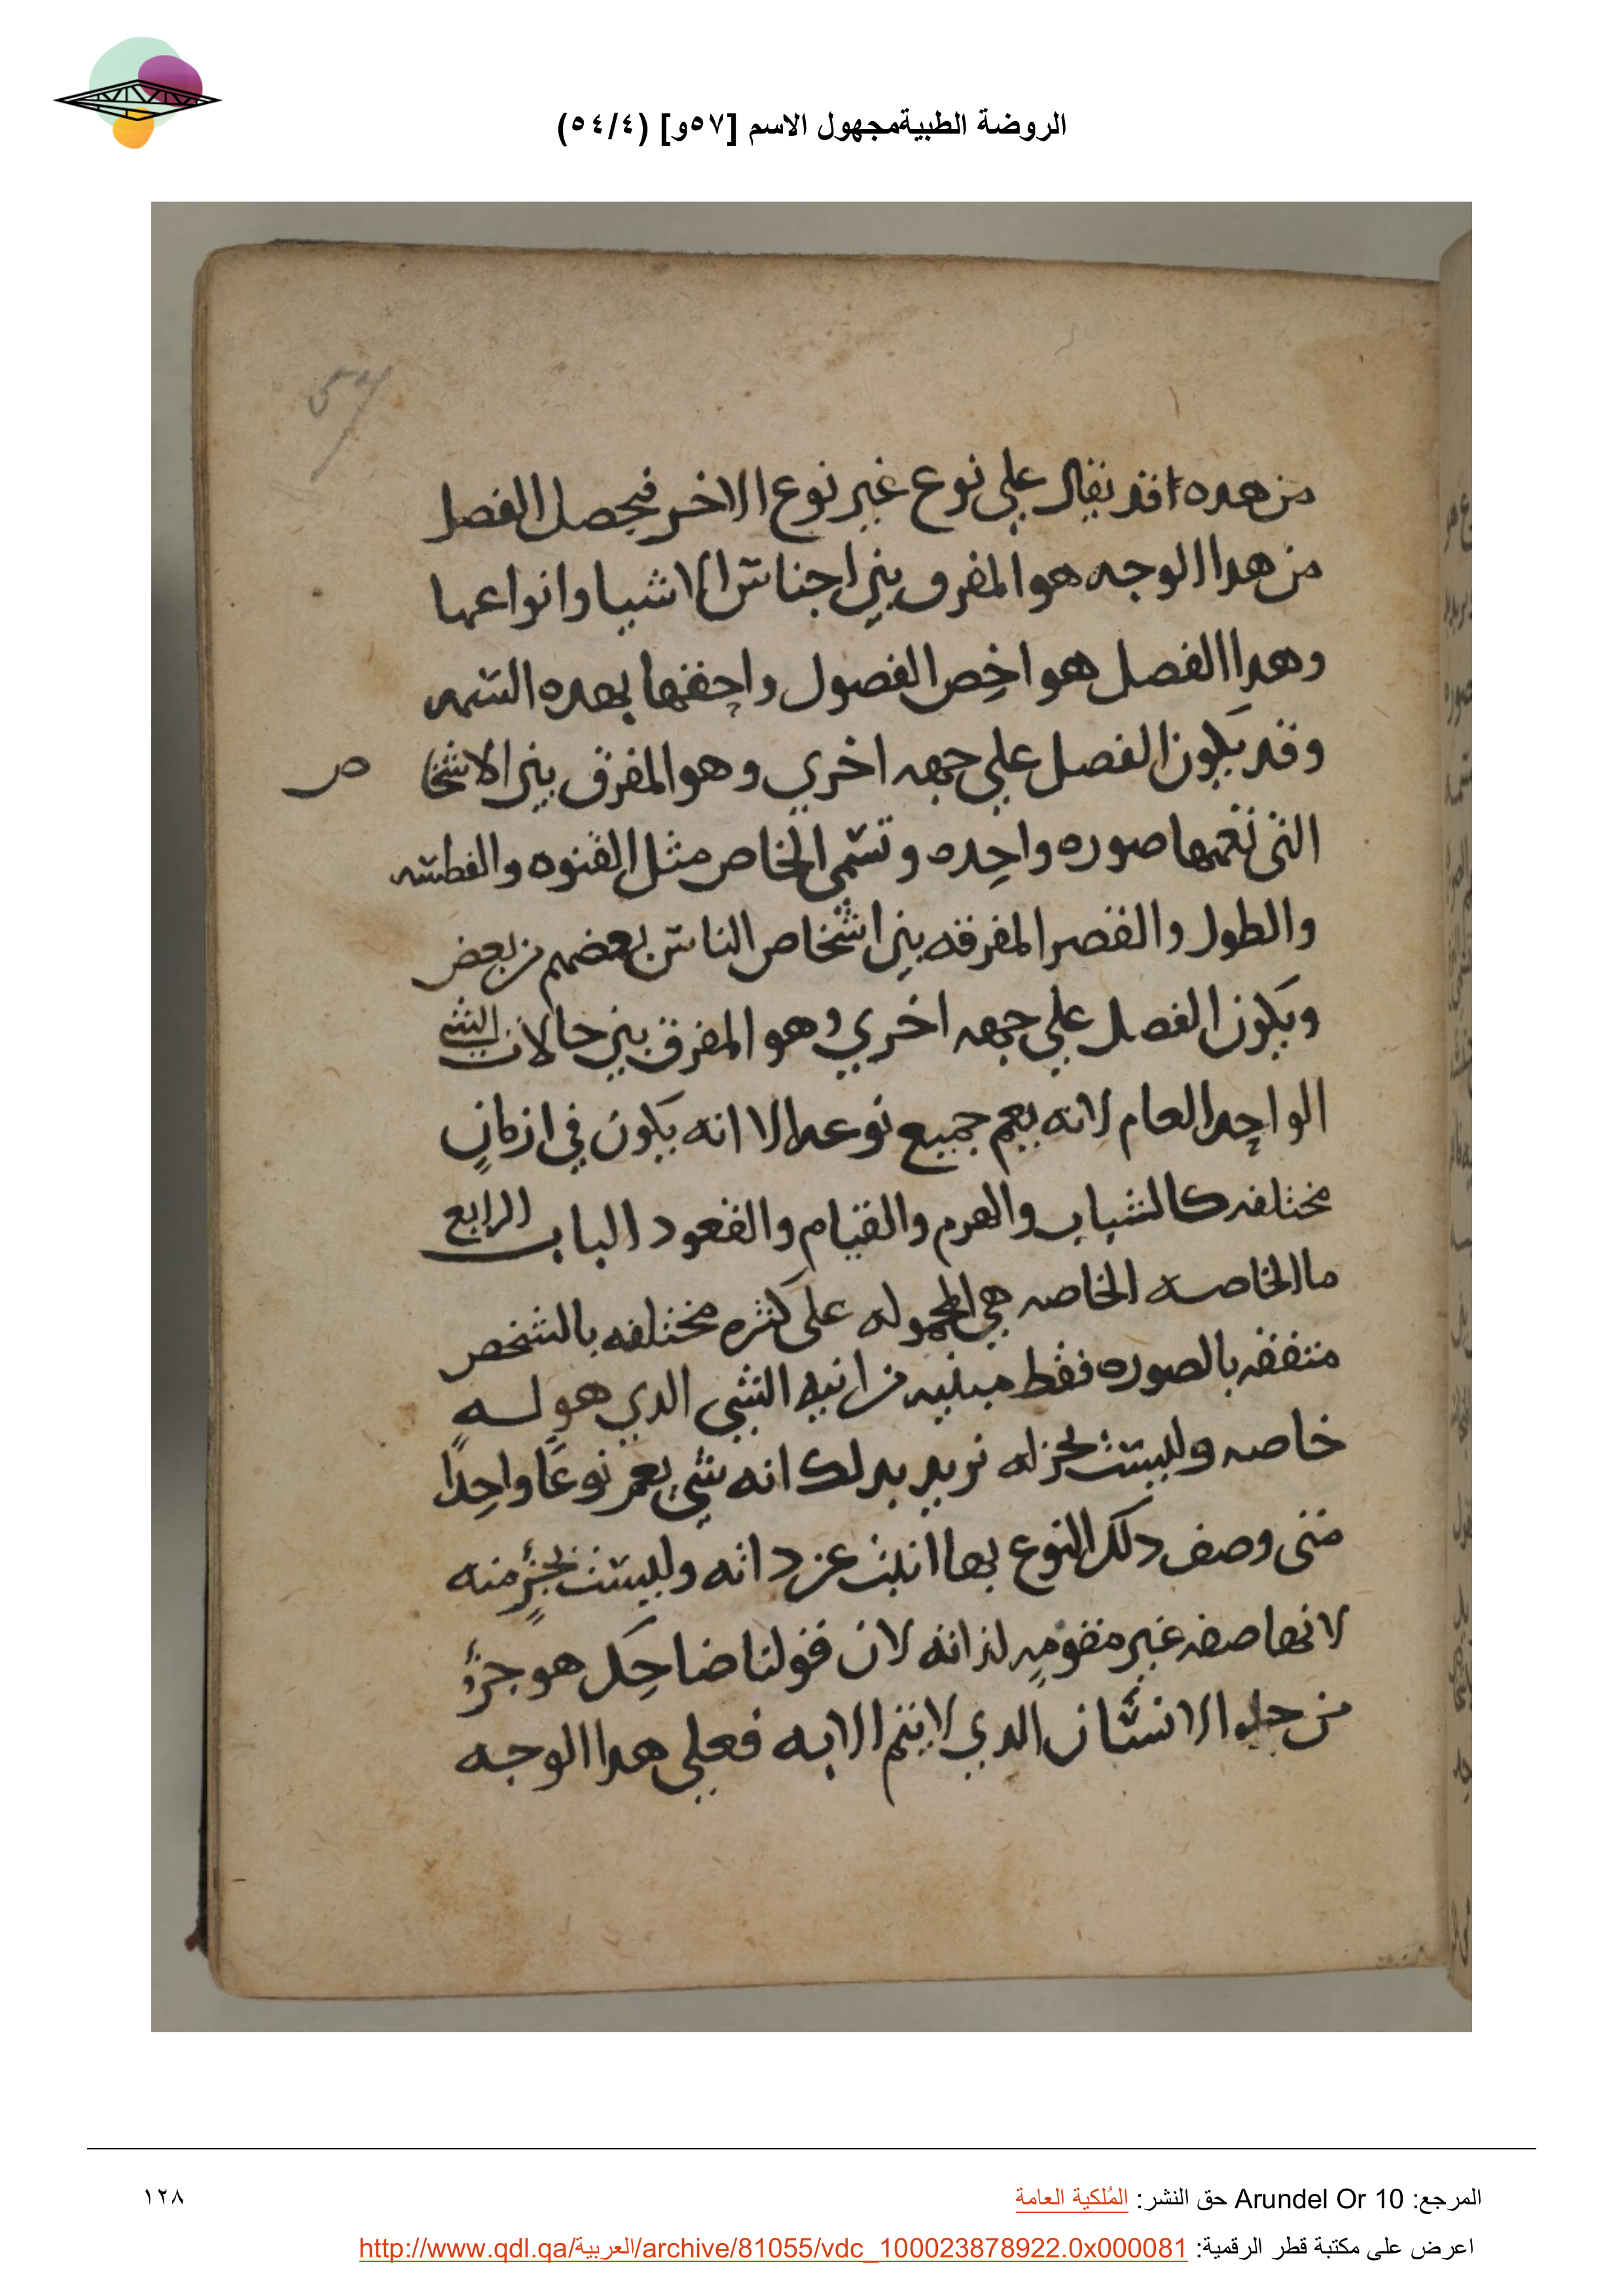 الروضة الطبيةمجهول الاسم [٥٧و] (٥٤/٤)
57
من هده قد يقال علي نوع غير نوع الاخر فيحصل الفصل
من هدا الوجه هو المفرق بين اجناس الاشيا وانواعها
وهدا الفصل هو اخص الفصول واحقها بهده السمه
وقد يكون الفصل علي جهه اخري وهو المفرق بين الاشخا ص
التي تعمها صوره واحده وتسمي الخاص مثل القنوه والفطسه
والطول والقصر المفرقه بين اشخاص الناس بعضهم من بعض
ويكون الفصل علي جهه اخري وهو المفرق بين حالات الشي
الواحد العام لانه يعم جميع نوعه الا انه يكون في ازمانٍ
مختلفه كالشباب والهرم والقيام والقعود الباب الرابع
ما الخاصه الخاصه هي المحموله علي كثره مختلفه بالشخص
متفقه بالصوره فقط مبنيه من انيه الشي الدي هو له
خاصه وليست بجز له نريد بدلك انه شي يعم نوعًا واحِدًا
متي وصف دلك النوع بها انبت عن داته وليست بجزٍ منه
لانها صفه غير مقومه لذاته لان قولنا ضاحِك هو جزءٌ
من حد الانسان الدي لا يتم الا به فعلي هدا الوجه
المرجع: Arundel Or 10 حق النشر: المُلكية العامة
١٢٨
اعرض على مكتبة قطر الرقمية: http://www.qdl.qa/العربية/archive/81055/vdc_100023878922.0x000081